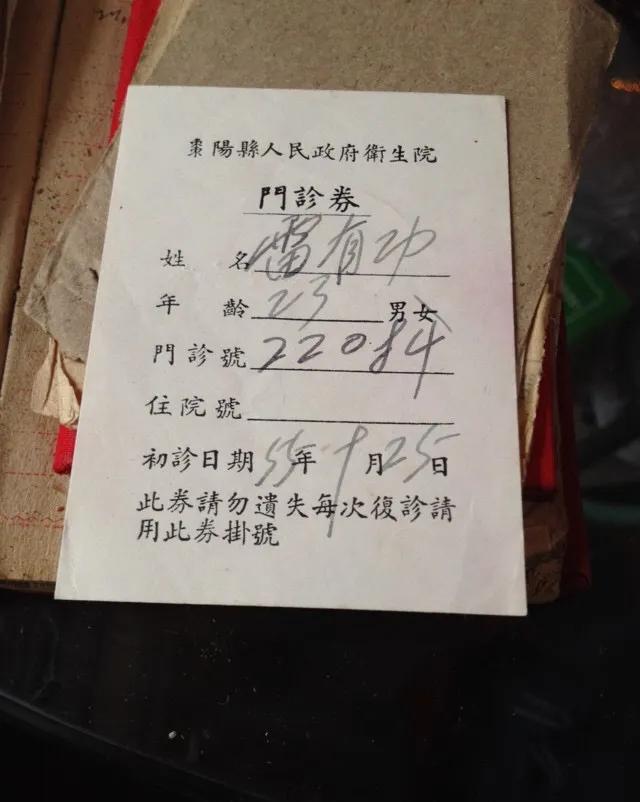 棗陽縣人民政府衛生院
門診券
姓名 雷有功
年齡 23 男女
門診號 2208
住院號
初診日期 55年 十月25日
此券請勿遺失每次復診請
用此券掛號